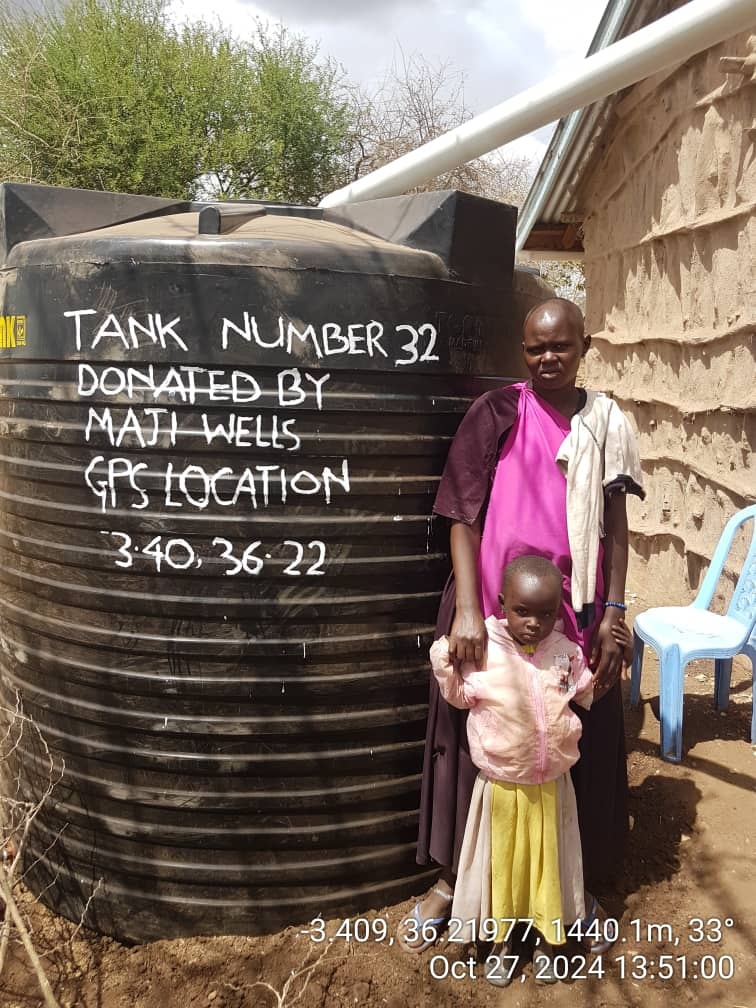 TANK NUMBER 32
DONATED BY
MAJI WELLS
GPS LOCATION
-3.40, 36.22
-3.409, 36.21977, 1440.1m, 33°
Oct 27, 2024 13:51:00